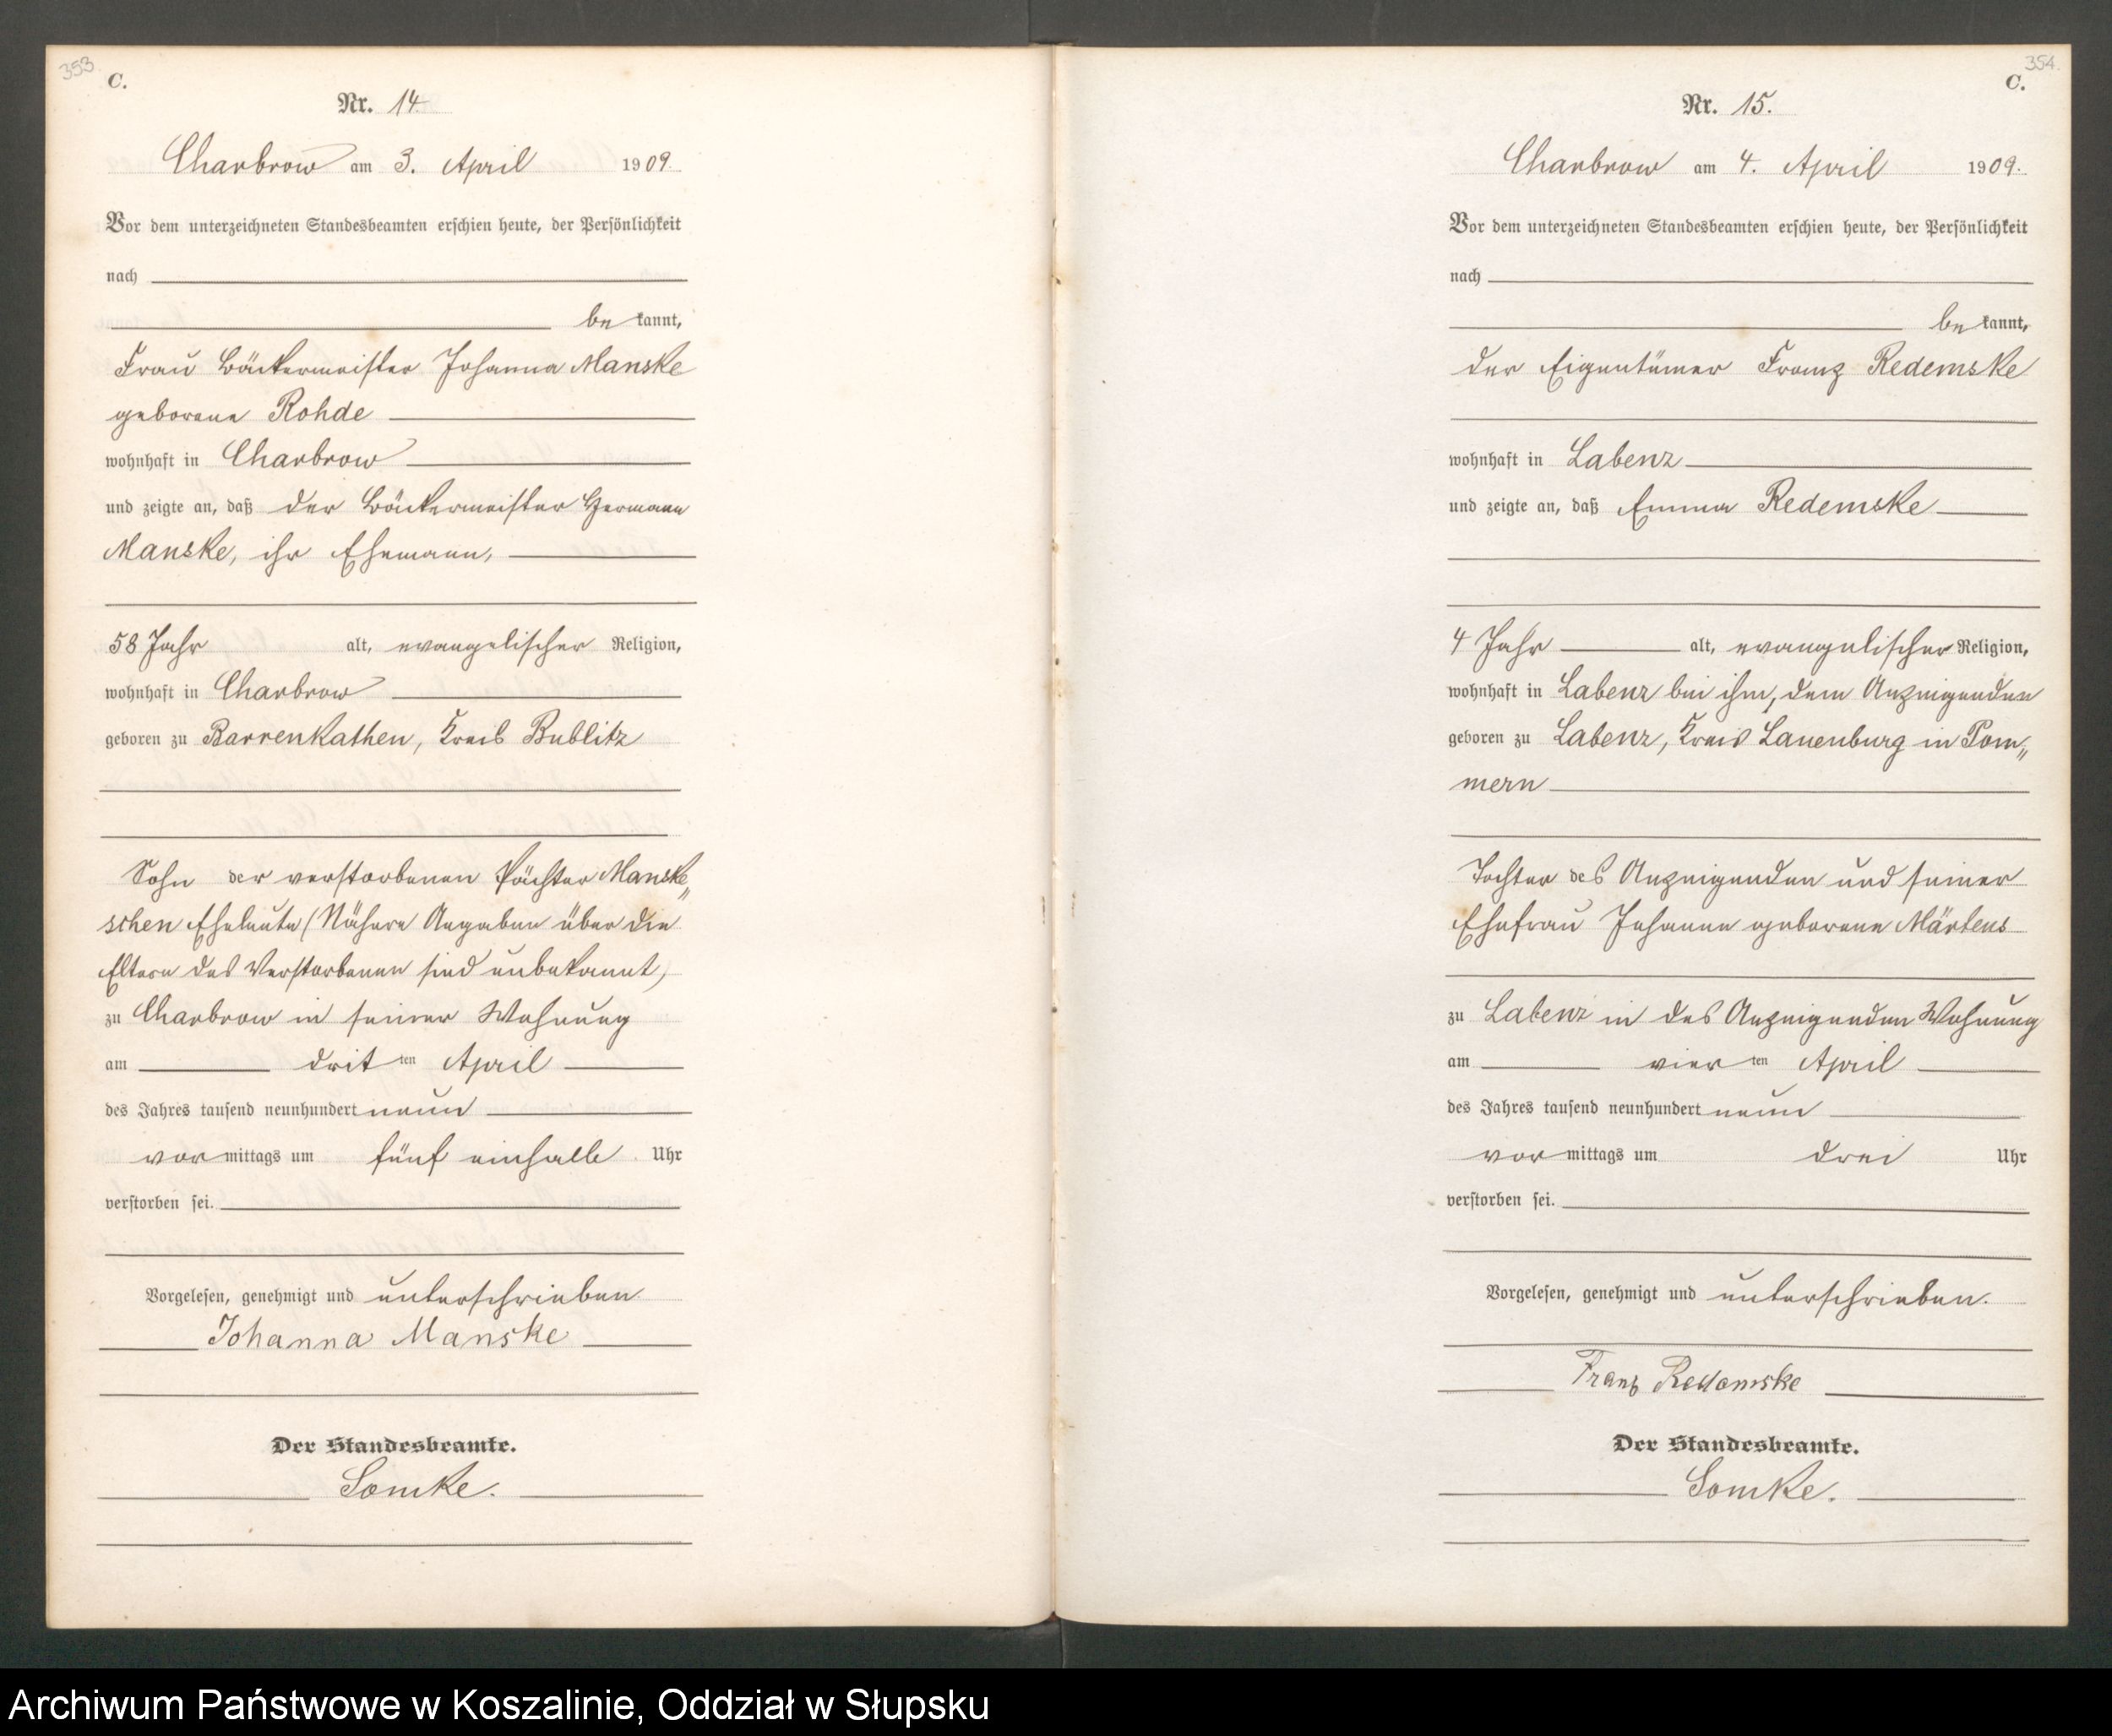 353.
C.
Nr. 14.
Charbrow am 3. April 1909.
Vor dem unterzeichneten Standesbeamten erschien heute, der Persönlichkeit
nach
be kannt,
Frau Bäckermeister Johanna Manske
geborene Rohde
wohnhaft in Charbrow
und zeigte an, daß der Bäckermeister Hermann
Manske, ihr Ehemann,
58 Jahr alt, evangelischer Religion,
wohnhaft in Charbrow
geboren zu Barrenkathen, Kreis Bublitz
Sohn der verstorbenen Pächter Manske„
schen Eheleute (Nähere Angaben über die
Eltern des Verstorbenen sind unbekannt)
zu Charbrow in seiner Wohnung
am drit ten April
des Jahres tausend neunhundert neun
vor mittags um fünf einhalb Uhr
verstorben sei.
Vorgelesen, genehmigt und unterschrieben
Johanna Manske
Der Standesbeamte.
Somke.
354.
C.
Nr. 15.
Charbrow am 4. April 1909.
Vor dem unterzeichneten Standesbeamten erschien heute, der Persönlichkeit
nach
be kannt,
der Eigentümer Franz Redemske
wohnhaft in Labenz
und zeigte an, daß Emma Redemske
4 Jahr alt, evangelischer Religion,
wohnhaft in Labenz bei ihm, dem Anzeigenden
geboren zu Labenz, Kreis Lauenburg in Pom„
mern
Tochter des Anzeigenden und seiner
Ehefrau Johanne geborene Märtens
zu Labenz in des Anzeigenden Wohnung
am vier ten April
des Jahres tausend neunhundert neun
vor mittags um drei Uhr
verstorben sei.
Vorgelesen, genehmigt und unterschrieben.
Franz Redemske
Der Standesbeamte.
Somke.
Archiwum Państwowe w Koszalinie, Oddział w Słupsku